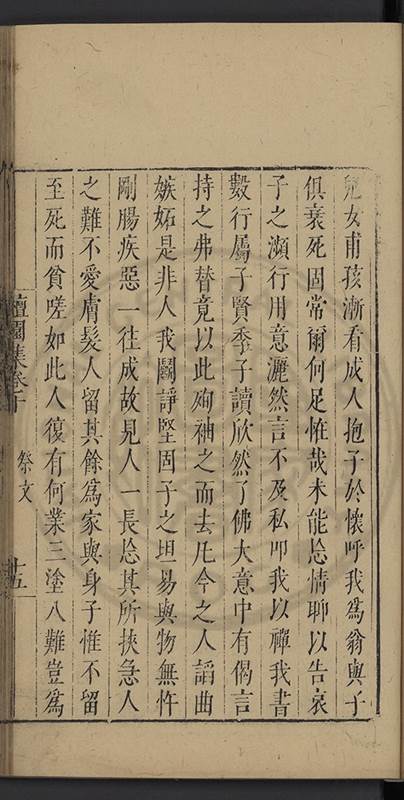 兒女甫孩漸看成人抱子於懷呼我為翁與子
俱衰死固常爾何足恠哉未能忘情聊以告哀
子之瀕行用意灑然言不及私叩我以禪我書
數行屬子賢季子讀欣然了佛大意中有偈言
持之弗替竟以此殉袖之而去凡今之人謟曲
嫉妬是非人我鬭諍堅固子之坦易與物無忤
剛腸疾惡一往成故見人一長忘其所挾急人
之難不愛膚髮人留其餘為家與身子惟不留
至死而貧嗟如此人復有何業三塗八難豈為
檀園集卷十
祭文
十五